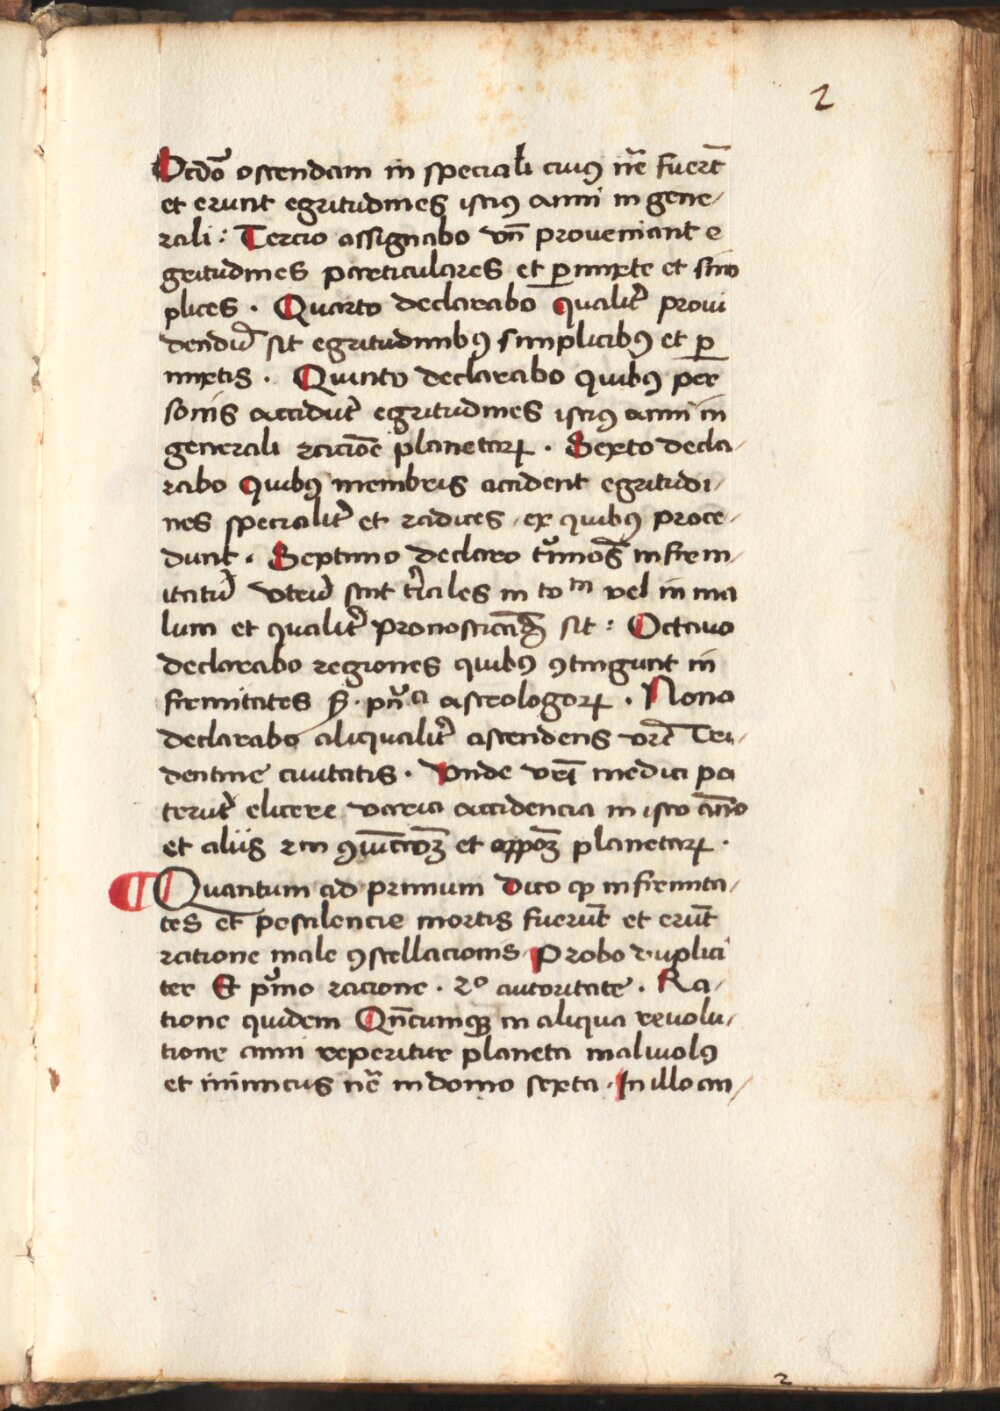 2
Scdo͂ ostendam in speciali cuiꝰ nr̄e fuer̄t
et erunt egritudines istiꝰ anni in gene/
rali : Tercio assignabo vn̄ proveniant e
gritudines particulares et ꝑmixte et sim
plices . Quarto declarabo qualit͛ provi
dendū sit egritudinibꝰ simplicibꝰ et ꝑ
mixtis . Quinto declarabo quibꝰ per
sonis accidūt egritudines istiꝰ anni in
generali racio͂e planetarꝝ . Sexto decla/
rabo quibꝰ membris accident egritudi/
nes specialit͛ et radices / ex quibꝰ proce/
dunt . Septimo declaro t͛mos infirm/
itatū vtrū sint t͛iales in toᵐ vel in ma
lum et qualit͛ pronosticādꝫ sit : Octavo
declarabo regiones quibꝰ ꝯtingunt in
firmitates s̄. pn̄ᵃ astrologorꝝ . Nono
declarabo aliqualit͛ ascendens vr̄e Tri/
dentine civitatis . Vnde vr̄i medici po
terūt elicere varia accidencia in isto an̄o
et aliis rm ꝯiūctio͂ꝫ et oppo͂ꝫ planetarꝝ .
¶ Quantum ad primum Dico ꝙ infirmita/
tes et pestilencie mortis fuerūt et erūt
ratione male ꝯstellacionis . Probo duplici
ter Et pͥmo racione . 2º autoritate . Ra/
tione quidem Qn̄cumqꝫ in aliqua revolu/
tione anni reperitur planeta malivolꝰ
et inimicus nr̄e in domo sexta . In illo an/
2